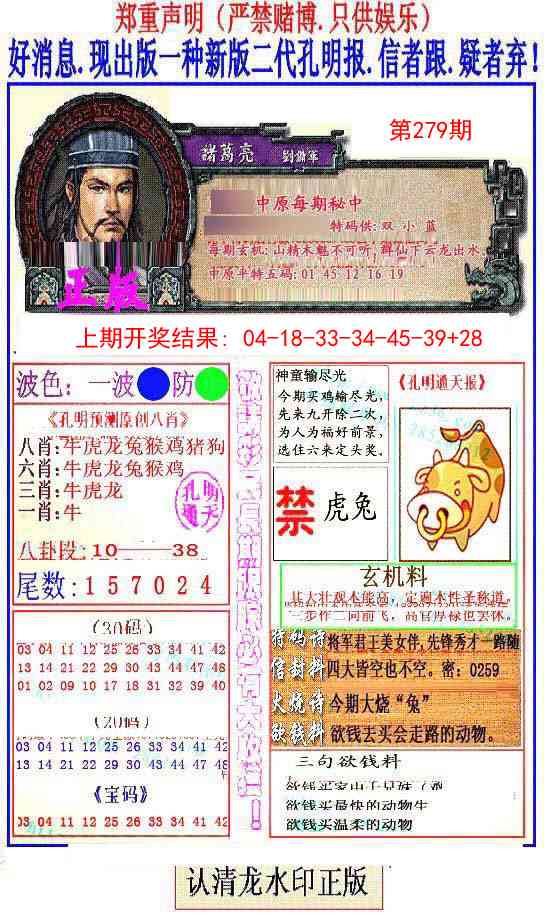 郑重声明（严禁赌博.只供娱乐）
好消息.现出版一种新版二代孔明报.信者跟.疑者弃!
第279期
諸葛亮
中原每期秘中
特码供:双 小 蓝
每期玄机:山精木魅不可听,群仙下云龙出水
中原平特五码:01 45 12 16 19
正版
上期开奖结果: 04-18-33-34-45-39+28
波色: 一波 防
《孔明预测原创八肖》
八肖:牛虎龙兔猴鸡猪狗
六肖:牛虎龙兔猴鸡
三肖:牛虎龙
一肖:牛
孔明通天
八卦段:10——38
尾数:157024
(30码)
03 04 11 12 25 26 33 34 41 42
13 14 21 22 29 30 43 44 47 48
01 02 09 10 17 18 31 32 39 40
(20码)
03 04 11 12 25 26 33 34 41 42
13 14 21 22 29 30 43 44 47 48
《宝码》
03 04 11 12 25 26 33 34 41 42
神童输尽光
今期买鸡输尽光,
先来九开除二次,
为人为福好前景,
选住六来定头奖。
《孔明通天报》
禁
虎兔
玄机料
特码诗 将军君王美女伴,先锋秀才一路随
信封料 四大皆空也不空。密:0259
火烧诗 今期大烧“兔”
欲钱料 欲钱去买会走路的动物。
三句欲钱料
欲钱买最快的动物生
欲钱买温柔的动物
认清龙水印正版